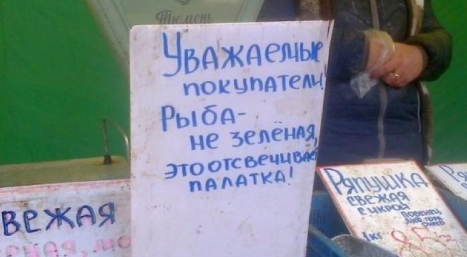 Тюмень
Уважаемые
покупатели!
Рыба-
не зелёная,
это отсвечивает
палатка!
свежая
Ряпушка
свежая
с икрой
1кг